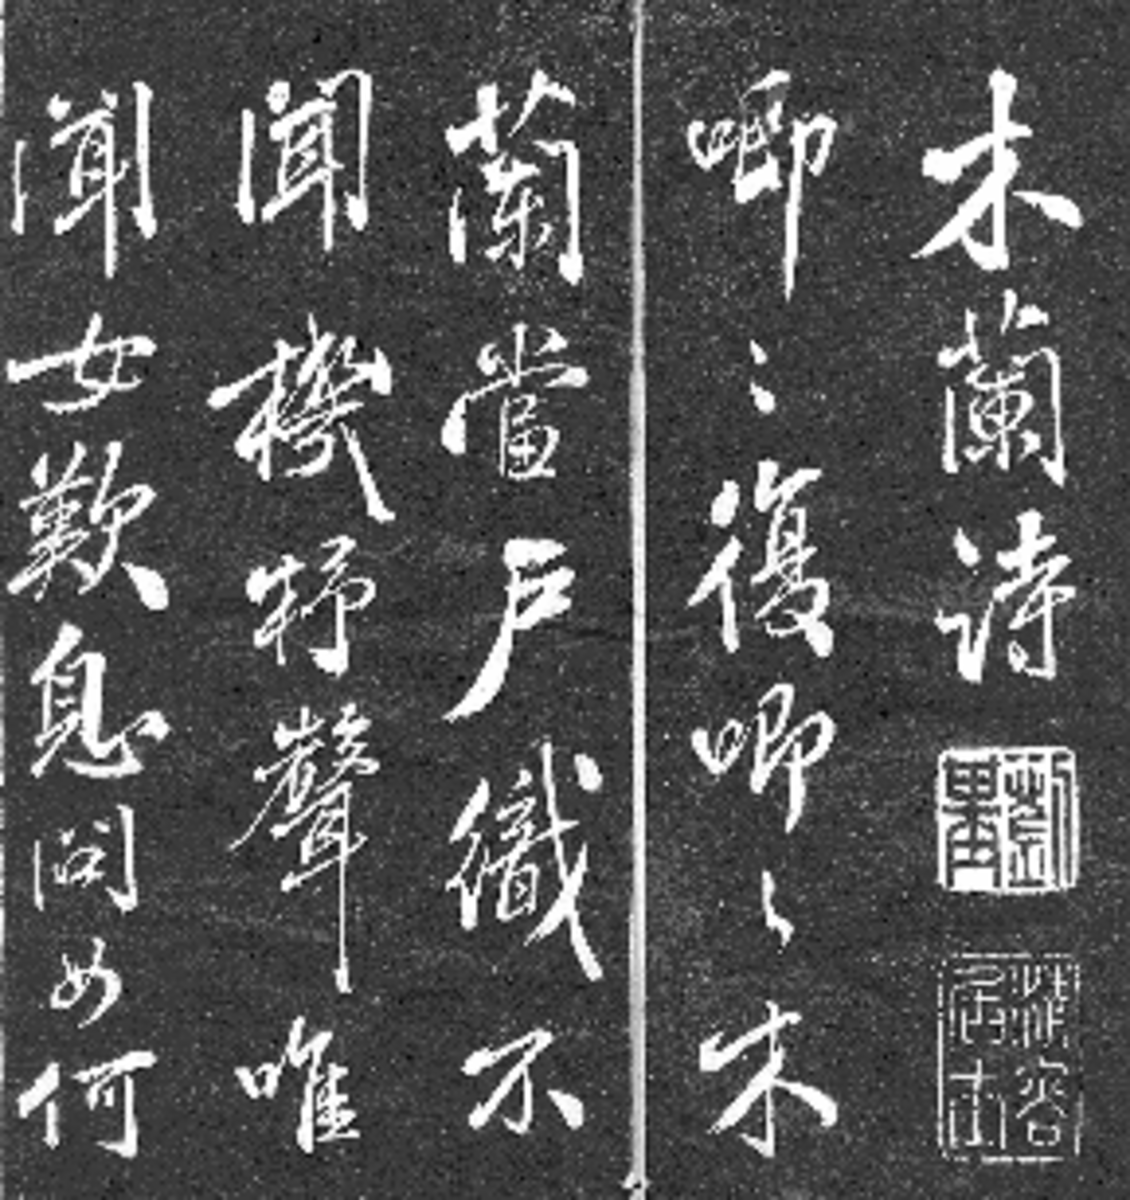 木蘭詩
唧〻復唧〻木
蘭當戶織不
聞機杼聲唯
聞女歎息問如何